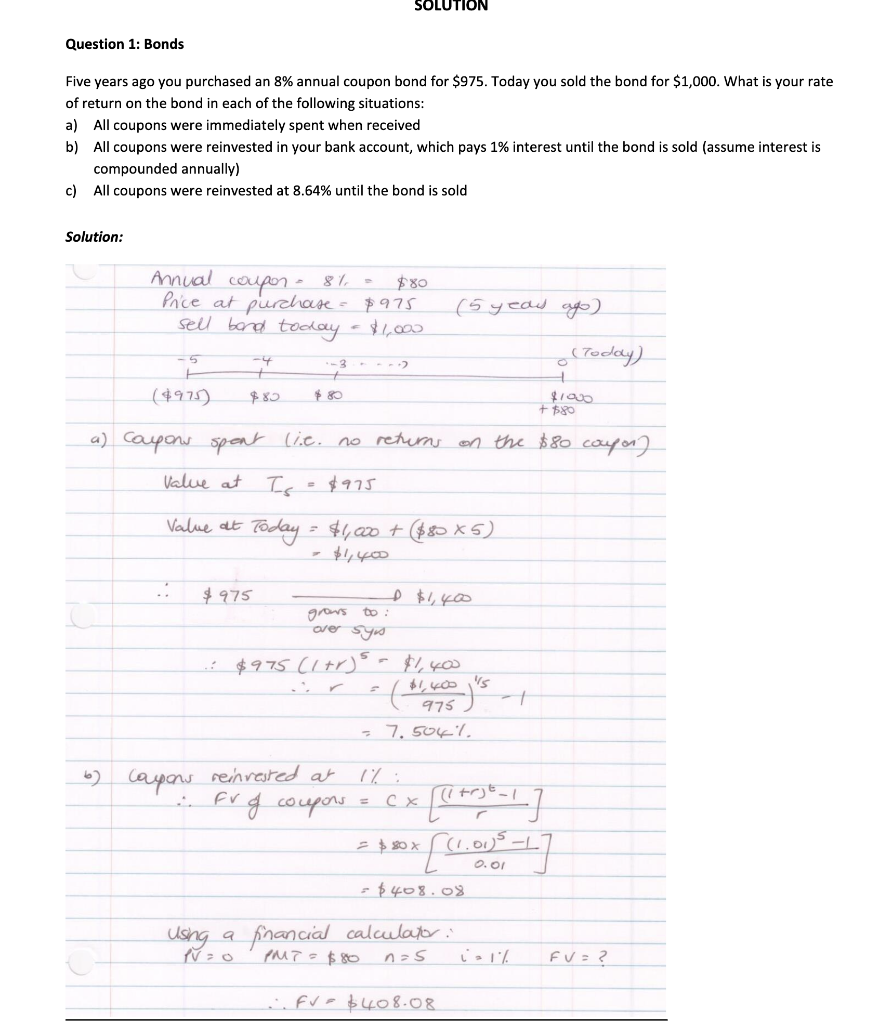 SOLUTION
Question 1: Bonds
Five years ago you purchased an 8% annual coupon bond for $975. Today you sold the bond for $1,000. What is your rate
of return on the bond in each of the following situations:
a) All coupons were immediately spent when received
b) All coupons were reinvested in your bank account, which pays 1% interest until the bond is sold (assume interest is
compounded annually)
c) All coupons were reinvested at 8.64% until the bond is sold
Solution:
Annual coupon = 8% = $80
Price at purchase = $975 (5 years ago)
Sell bond today = $1,000
-5 -4 -3 ----> 0 (Today)
($975) $80 $80 $1000
+ $80
a) Coupons spent (i.e. no returns on the $80 coupon)
Value at T5 = $975
Value at Today = $1,000 + ($80 x 5)
= $1,400
∴ $975 → $1,400
grows to:
over 5yrs
∴ $975 (1+r)^5 = $1,400
∴ r = ($1,400 / 975)^1/5 - 1
= 7.504%.
b) Coupons reinvested at 1% :
∴ FV of coupons = C x [((1+r)^t - 1) / r]
= $80 x [((1.01)^5 - 1) / 0.01]
= $408.08
Using a financial calculator:
PV = 0 PMT = $80 n = 5 i = 1% FV = ?
∴ FV = $408.08